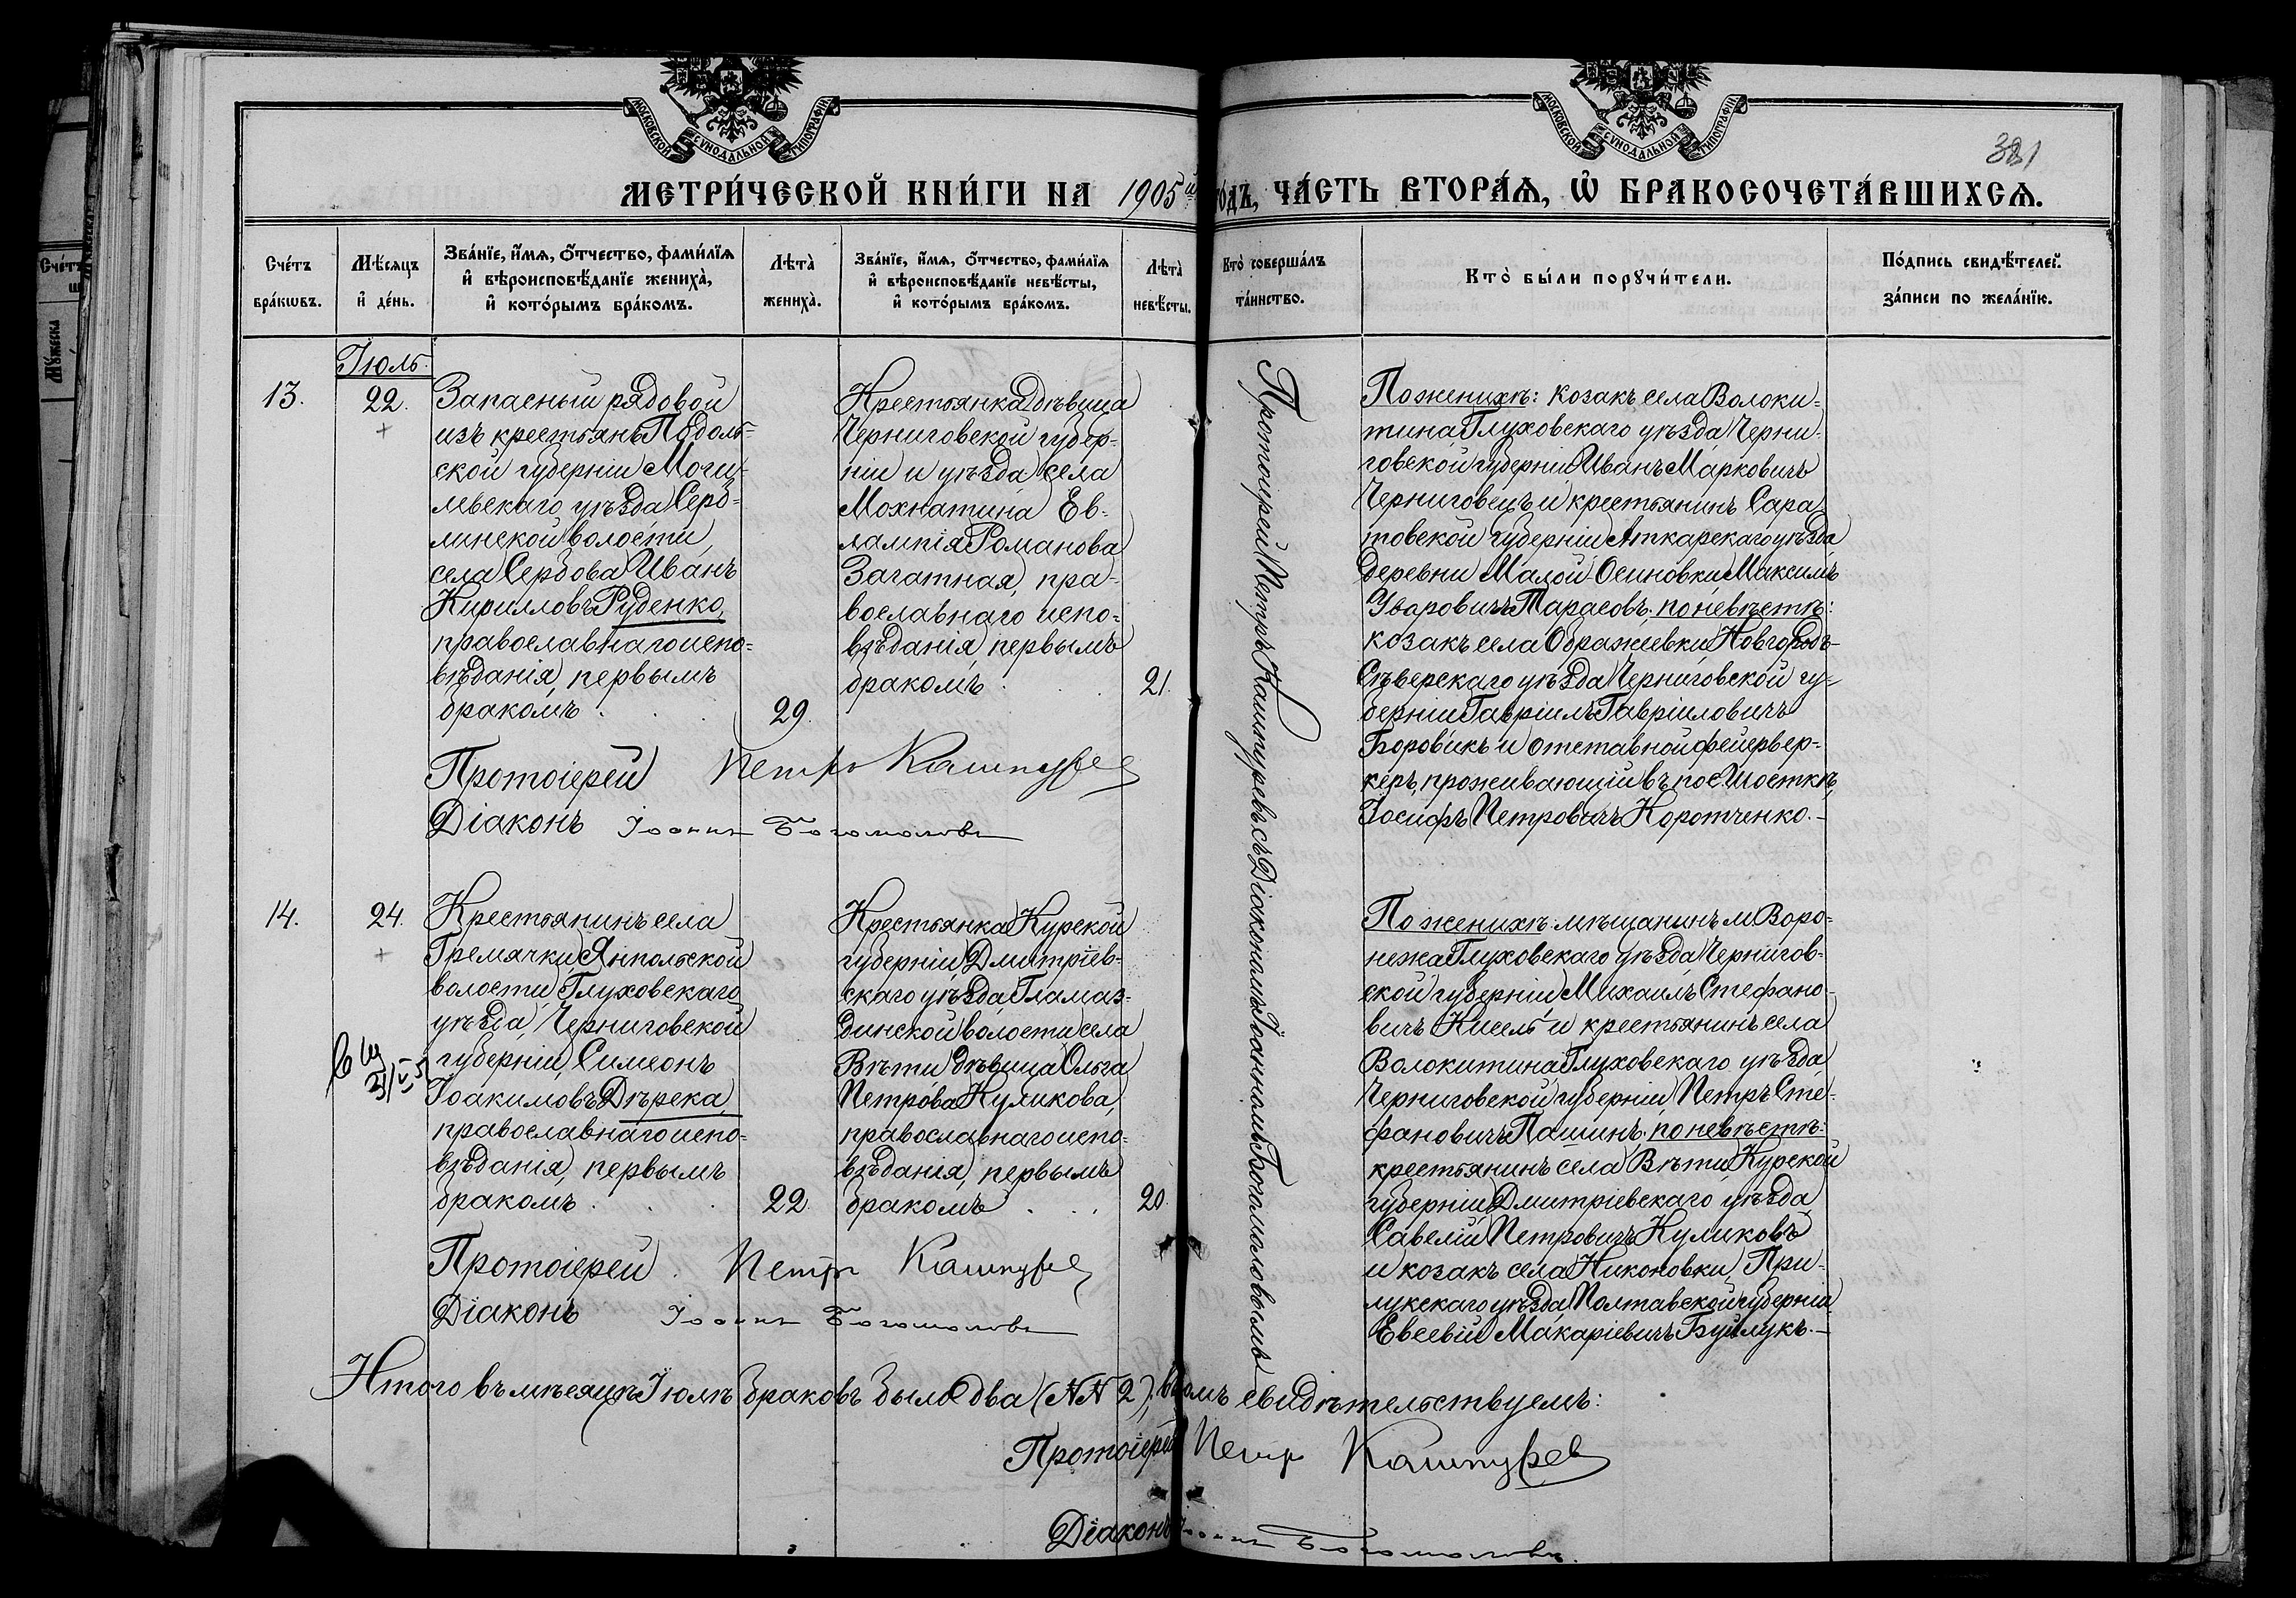 МОСКОВСКОЙ СѴНОДАЛЬНОЙ ТИПОГРАФІИ
МОСКОВСКОЙ СѴНОДАЛЬНОЙ ТИПОГРАФІИ
381
МЕТРИ́ЧЕСКОЙ КНИ́ГИ НА 1905й го́дъ, ЧА́СТЬ ВТОРА́Ѧ, Ѽ БРАКОСОЧЕТА́ВШИХСѦ.
Сче́тъ
бра́кѡвъ.
Мѣ́сяцъ
и҆ де́нь.
Зва́нїе, и҆́мѧ, ѻ҆́тчество, фами́лїѧ
и҆ вѣроисповѣ́данїе жениха̀,
и҆ кото́рымъ бра́комъ.
Лѣта̀
жениха̀.
Зва́нїе, и҆́мѧ, ѻ҆́тчество, фами́лїѧ
и҆ вѣроисповѣ́данїе невѣ́сты,
и҆ кото́рымъ бра́комъ.
Лѣта̀
невѣ́сты.
Кто̀ соверша́лъ
та́инство.
Кто̀ бы́ли порꙋчи́тели.
По́дпись свидѣ́телей
за́писи по жела́нїю.
Іюль.
13.
22.
Запасный рядовой
изъ крестьянъ Подоль-
ской губерніи Моги-
левскаго уѣзда Серб-
линской волости,
села Сербова Иванъ
Кирилловъ Руденко,
православнаго испо-
вѣданія, первымъ
бракомъ
29.
Крестьянка дѣвица
Черниговской губер-
ніи и уѣзда села
Мохнатина Ев-
лампія Романова
Зачатная, пра-
вославнаго испо-
вѣданія, первымъ
бракомъ
21.
Протоіерей Петръ Кашпуревъ съ Діакономъ Іоанномъ Богомоловымъ
По женихѣ: козакъ села Волоки-
тина, Глуховскаго уѣзда Черни-
говской губерніи Иванъ Марковичъ
Черниговецъ и крестьянинъ Сара-
товской губерніи Аткарскаго уѣзда,
деревни Малой Осиновки Максимъ
Уваровичъ Тарасовъ; по невѣстѣ:
козакъ села Ображиевки, Новгородъ-
Сѣверскаго уѣзда Черниговской гу-
берніи Гавріилъ Гавріиловичъ
Боровикъ и отставной фейервер-
керъ, проживающій въ пос. Шосткѣ,
Іосифъ Петровичъ Коротченко.-
Протоіерей Петръ Кашпурев
Діаконъ Іоаннъ Богомоловъ
14.
24.
Крестьянинъ села
Гремячки, Янпольской
волости, Глуховскаго
уѣзда, Черниговской
губерніи, Симеонъ
Іоакимовъ Дѣрека,
православнаго испо-
вѣданія, первымъ
бракомъ
22.
Крестьянка Курской
губерніи Дмитріев-
скаго уѣзда Гламаз-
динской волости села
Вѣти дѣвица Ольга
Петрова Куликова,
православнаго испо-
вѣданія, первымъ
бракомъ
20.
По женихѣ: мѣщанинъ м. Воро-
нежа Глуховскаго уѣзда Чернигов-
ской губерніи Михаилъ Стефано-
вичъ Кисель и крестьянинъ села
Волокитина Глуховскаго уѣзда
Черниговской губерніи, Петръ Сте-
фановичъ Пашинъ; по невѣстѣ:
крестьянинъ села Вѣти, Курской
губерніи Дмитріевскаго уѣзда,
Савелій Петровичъ Куликовъ
и козакъ села Никоновки, При-
лукскаго уѣзда Полтавской губерніи,
Евсевій Макаріевичъ Буйлукъ.-
Протоіерей Петръ Кашпурев
Діаконъ Іоаннъ Богомоловъ
Итого въ мѣсяцѣ Іюлѣ браковъ было два (№№ 2); въ томъ свидѣтельствуемъ:
Протоіерей Петръ Кашпурев
Діаконъ Іоаннъ Богомоловъ.